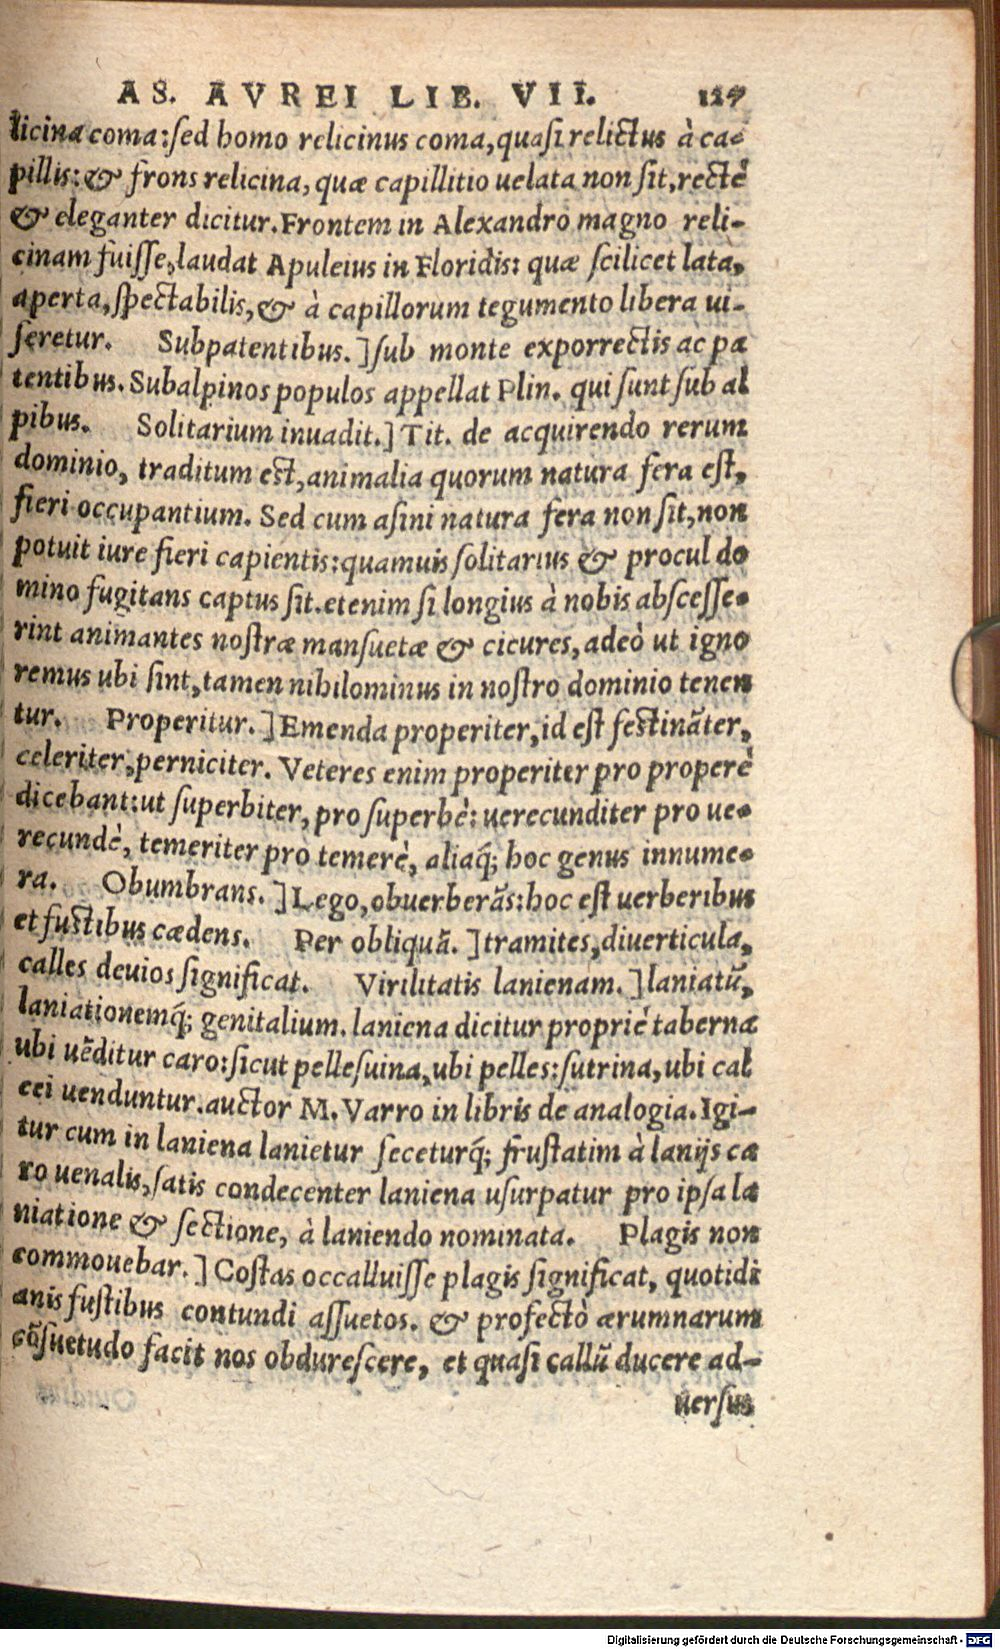 AS. AVREI LIB. VII. 127
licina coma:ſed homo relicinus coma,quaſi relictus à ca-
pillis:& frons relicina,quæ capillitio uelata non ſit,rectè
& eleganter dicitur.Frontem in Alexandro magno reli-
cinam fuiſſe,laudat Apuleius in Floridis: quæ ſcilicet lata,
aperta,ſpectabilis,& à capillorum tegumento libera ui-
ſeretur. Subpatentibus.]ſub monte exporrectis ac pa
tentibus.Subalpinos populos appellat Plin. qui ſunt ſub al
pibus. Solitarium inuadit.]Tit. de acquirendo rerum
dominio, traditum est,animalia quorum natura fera eſt,
fieri occupantium. Sed cum aſini natura fera non ſit,non
potuit iure fieri capientis:quamuis ſolitarius & procul do
mino fugitans captus ſit.etenim ſi longius à nobis abſceſſe-
rint animantes noſtræ manſuetæ & cicures,adeò ut igno
remus ubi ſint,tamen nihilominus in noſtro dominio tenen
tur. Properitur.]Emenda properiter,id eſt feſtinãter,
celeriter,perniciter. Veteres enim properiter pro properè
dicebant:ut ſuperbiter,pro ſuperbè: uerecunditer pro ue-
recundè, temeriter pro temerè, aliaq́; hoc genus innume-
ra. Obumbrans.]Lego,obuerberãs:hoc eſt uerberibus
et fuſtibus cædens. Per obliquã.]tramites,diuerticula,
calles deuios ſignificat. Virilitatis lanienam.]laniatũ,
laniationemq́; genitalium.laniena dicitur propriè tabernæ
ubi uẽditur caro:ſicut pelleſuina,ubi pelles:ſutrina,ubi cal
cei uenduntur.auctor M.Varro in libris de analogia.Igi-
tur cum in laniena lanietur ſeceturq́; fruſtatim à lanijs ca
ro uenalis,ſatis condecenter laniena uſurpatur pro ipſa la
niatione & ſectione, à laniendo nominata. Plagis non
commouebar.]Coſtas occalluiſſe plagis ſignificat, quotidi
anis fuſtibus contundi aſſuetos. & profectò ærumnarum
cõſuetudo facit nos obdureſcere, et quaſi callũ ducere ad-
uerſus
Digitalisierung gefördert durch die Deutsche Forschungsgemeinschaft - DFG